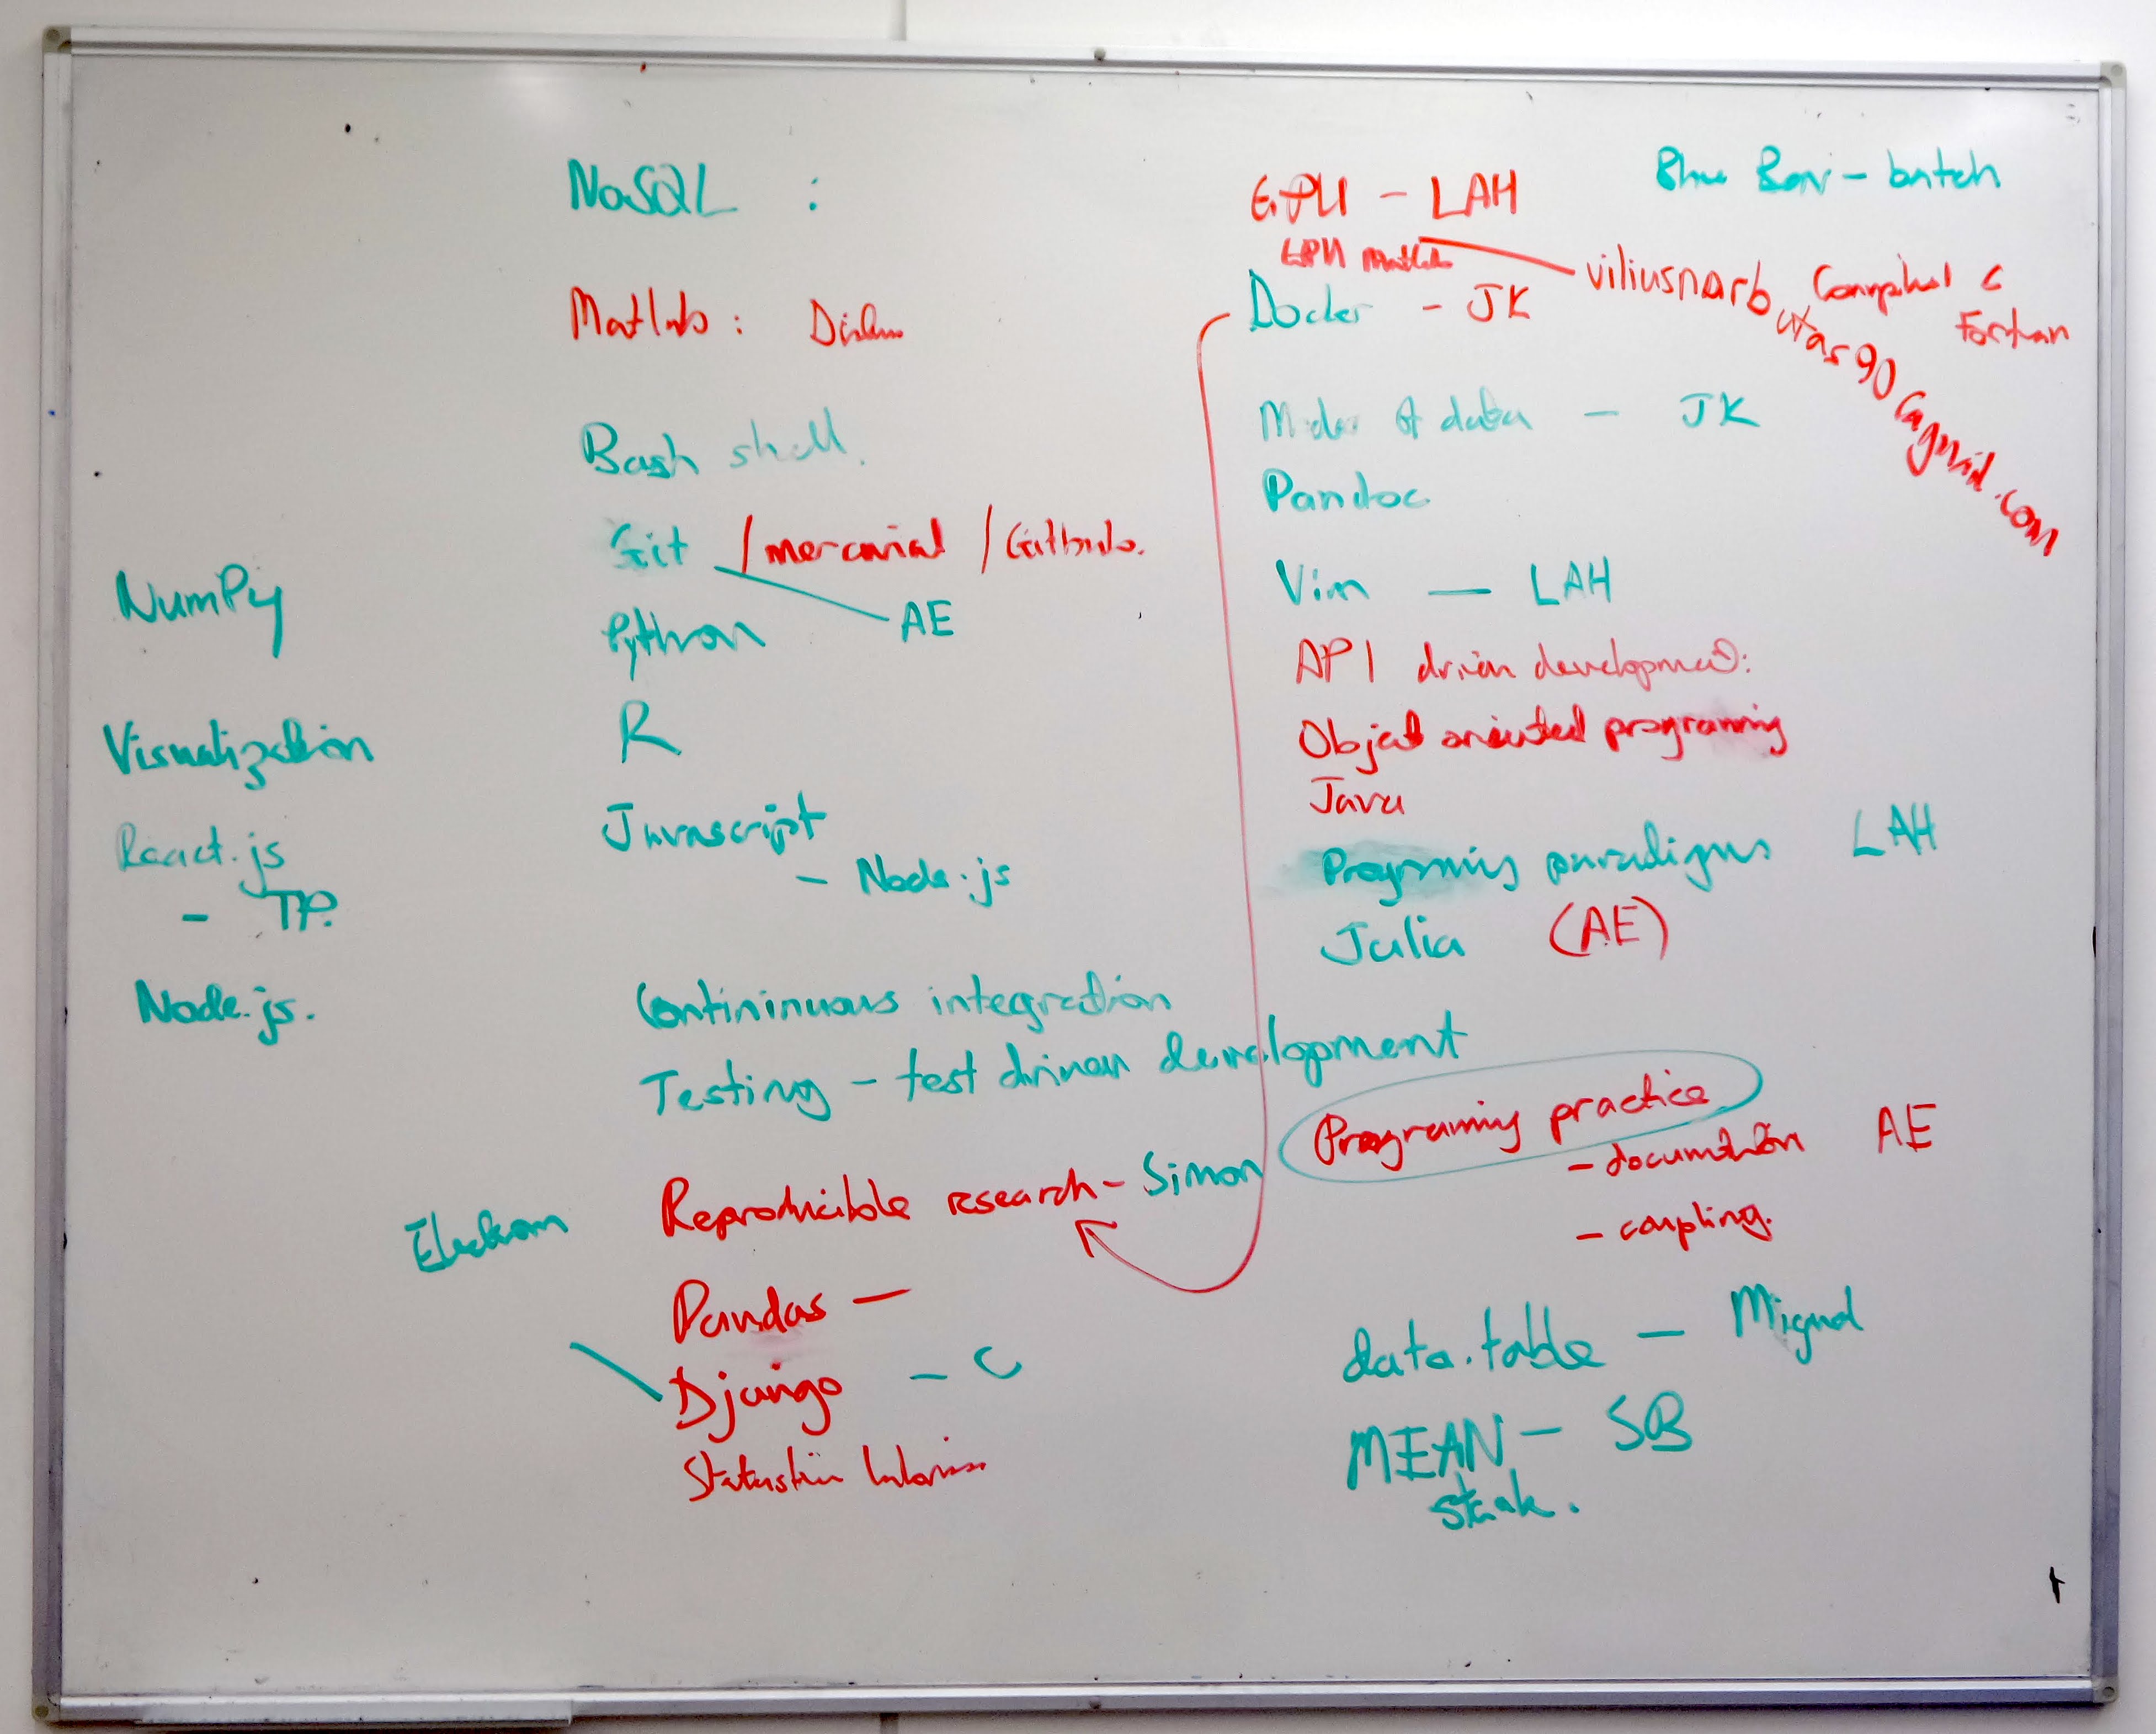 NoSQL :
Matlab :
Bash shell.
Git / mercurial / Github.
AE
Python
R
Javascript
- Node.js
Contininuous integration
Testing - test driven development
Reproducible research - Simon
Pandas -
Django - C
NumPy
Visualization
React.js
- TP.
Node.js.
Electron
GPU - LAH
GPU Matlab
Docker - JK
data - JK
Pandoc
Vim - LAH
API driven development:
Object oriented programing
Java
Programing paradigms LAH
Julia (AE)
Programing practice
- documentation AE
- coupling.
data.table - Miguel
MEAN - SB
stack.
Blue Bear - batch
Compiled C
Fortran